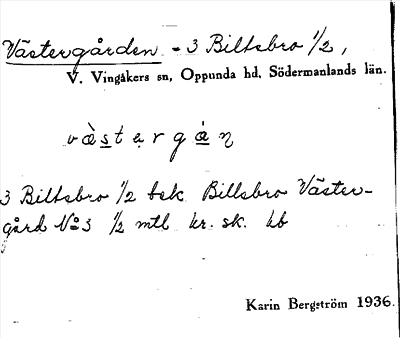 Västergården - 3 Biltsbro 1/2,
V. Vingåkers sn, Oppunda hd, Södermanlands län.
væ̀stərgȧn
3 Biltsbro 1/2 bsk Billsbro Väster-
gård No 3 1/2 mtl kr. sk. hb
Karin Bergström 1936.